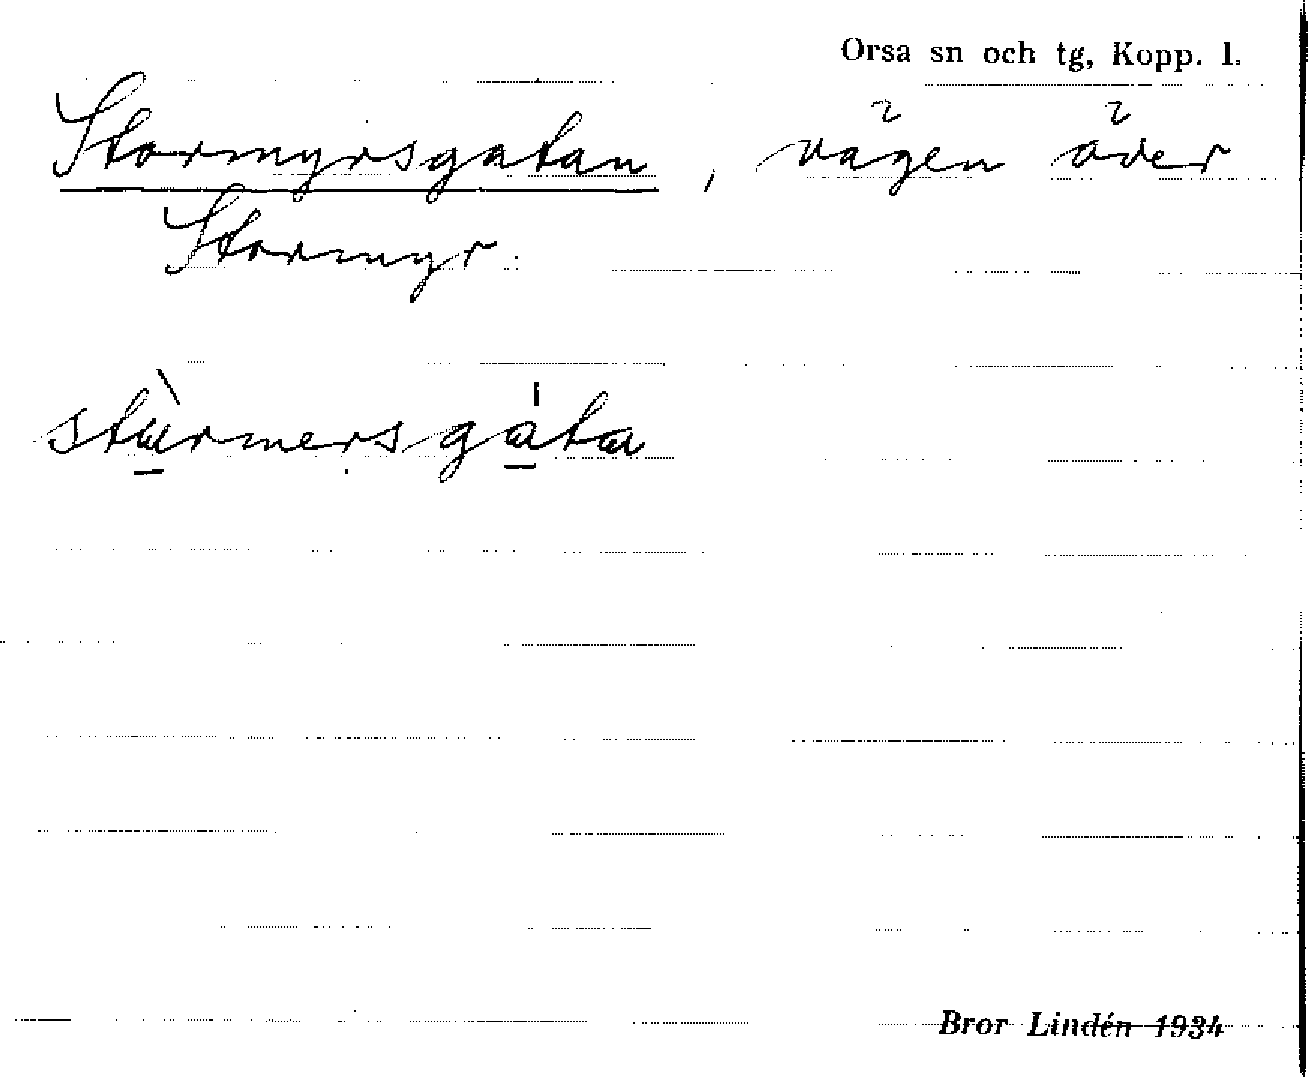 Orsa sn och tg, Kopp. l.
Stormyrsgatan, vägen över
Stormyr.
stùrmersgáta
Bror Lindén 1934